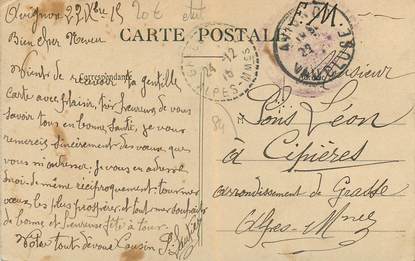 Avignon 22 Xbre 15
20€
CARTE POSTALE
F.M.
Bien cher Neveu
Correspondance
Viens de recevoir ta gentille
carte avec plaisir, suis heureux de vous
savoir tous en bonne santé, je vous
remercie sincèrement des vœux que
vous m'adressez. Je vous en adresse
moi de même réciproquement tous mes
vœux les plus prospères et tout mes souhaits
de bonne et heureuse fête à tous.
Votre tout dévoué Cousin
24 -12
15
ALPES MMES
AVIGNON
VAUCLUSE
Monsieur
Pons Léon
à Cipières
arrondissement de Grasse
Alpes-Mmes